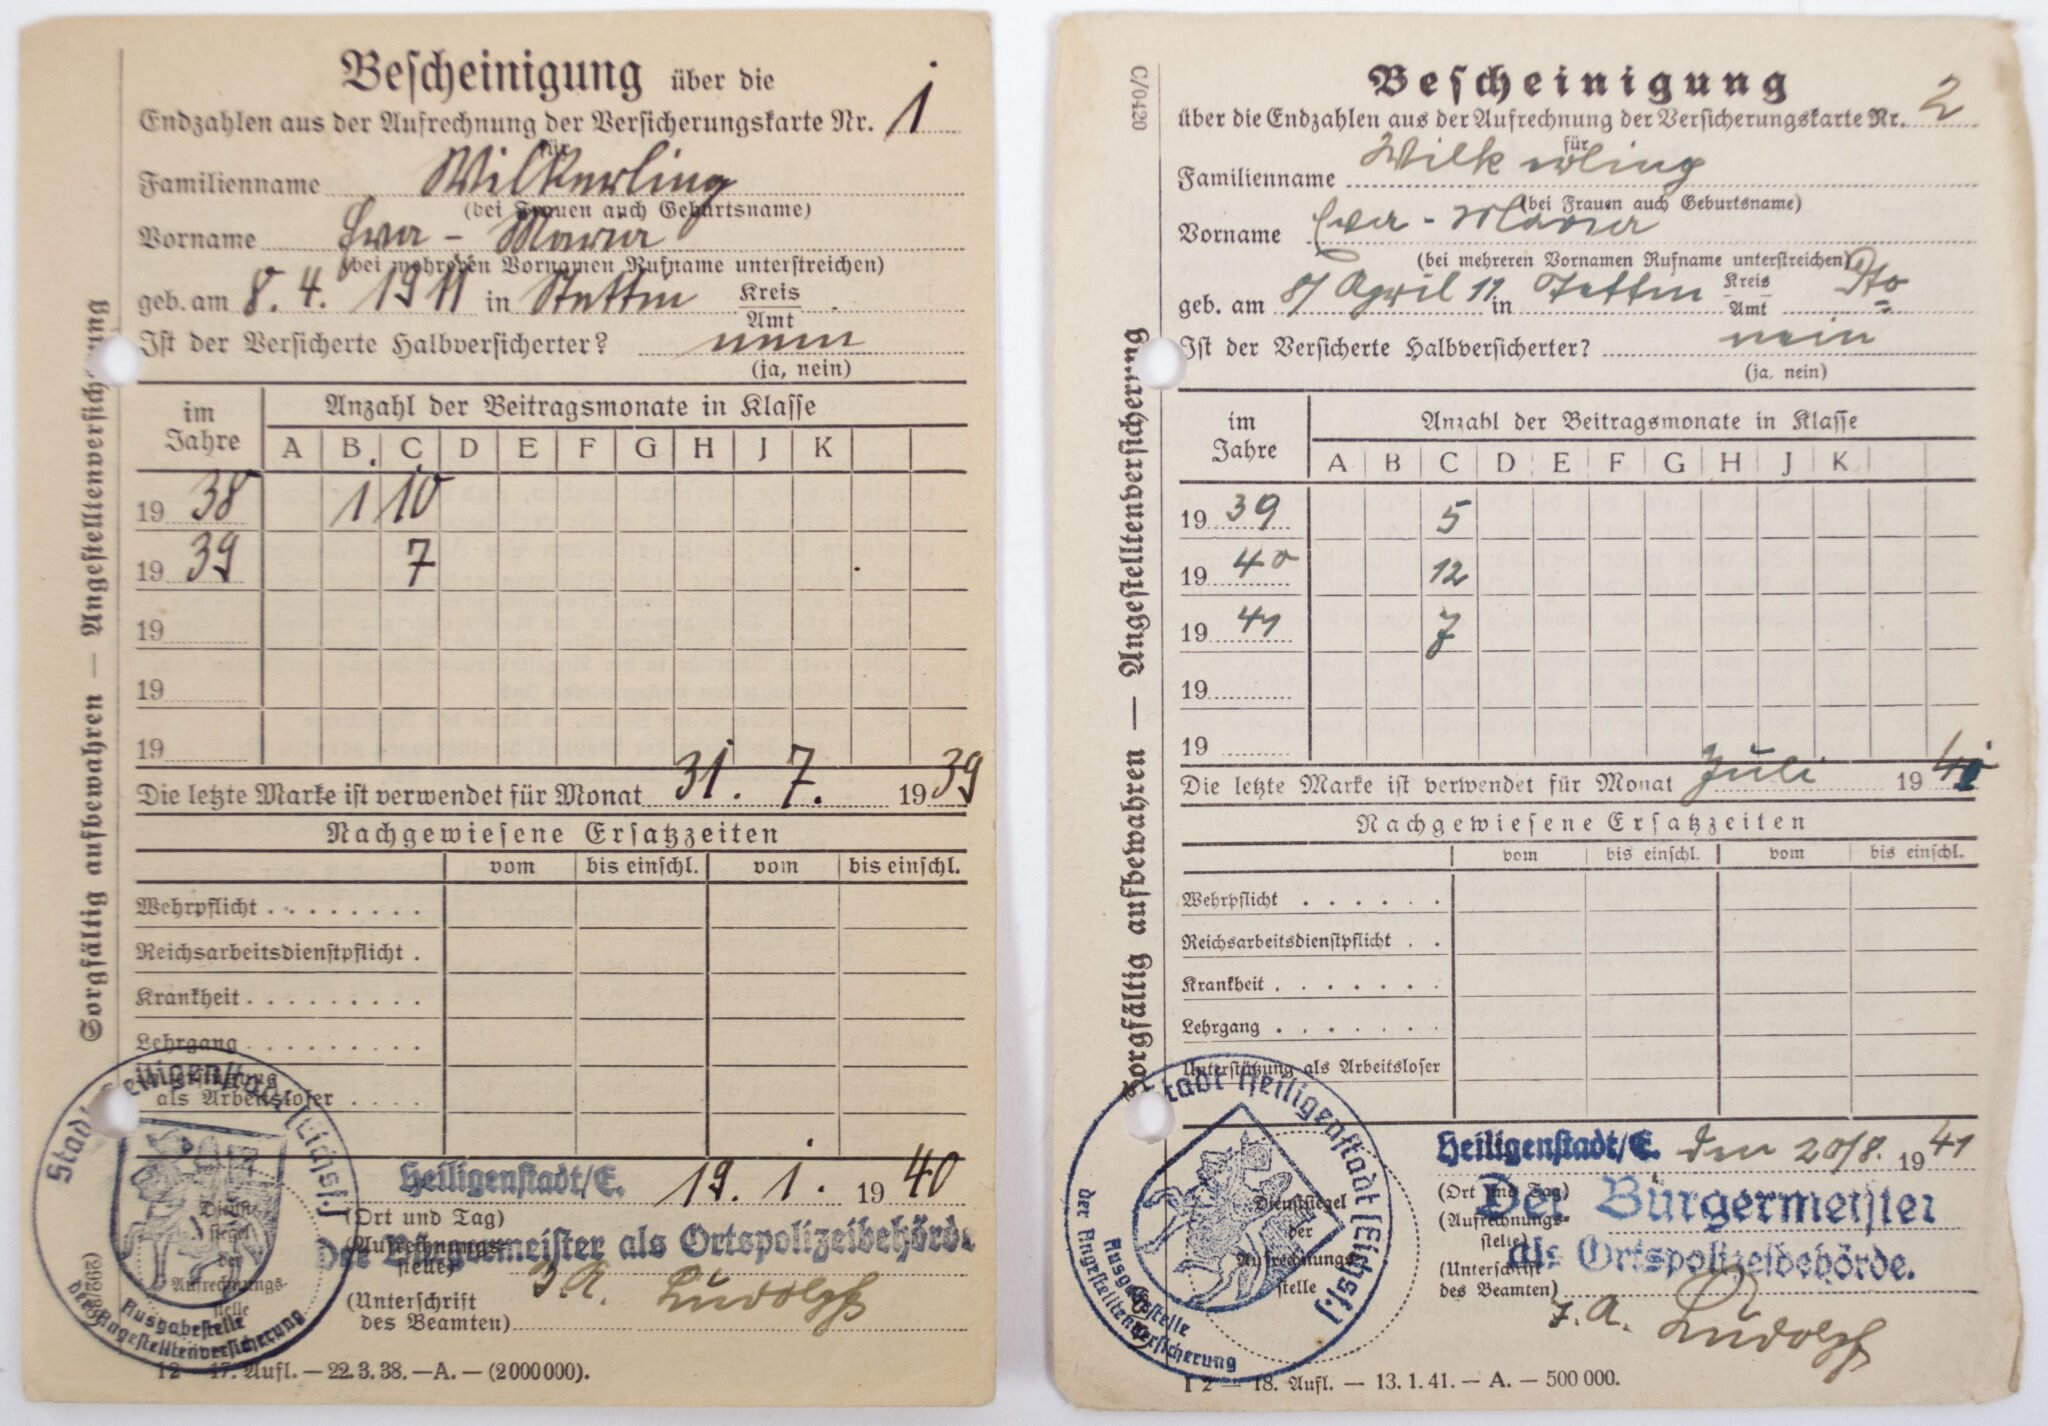 Bescheinigung über die
Endzahlen aus der Aufrechnung der Versicherungskarte Nr. 1
für
Familienname Wilkerling
(bei Frauen auch Geburtsname)
Vorname Eva - Maria
(bei mehreren Vornamen Rufname unterstreichen)
geb. am 8. 4. 1911 in Stettin Kreis
Amt
Ist der Versicherte Halbversicherter? nein
(ja, nein)
im Jahre
Anzahl der Beitragsmonate in Klasse
A B C D E F G H J K
19 38 1 10
19 39 7
19
19
19
Die letzte Marke ist verwendet für Monat 31. 7. 19 39
Nachgewiesene Ersatzzeiten
vom bis einschl. vom bis einschl.
Wehrpflicht
Reichsarbeitsdienstpflicht
Krankheit
Lehrgang
Unterstützung
als Arbeitsloser
Heiligenstadt/E. 19. 1. 19 40
(Ort und Tag)
Der Bürgermeister als Ortspolizeibehörde
(Aufrechnungs-
stelle)
J. A. Ludolph
(Unterschrift
des Beamten)
Stadt Heiligenstadt (Eichsf.)
Ausgabestelle
der Angestelltenversicherung
Dienst-
siegel
der
Aufrechnungs-
stelle
12 — 17. Aufl. — 22.3.38. — A. — (2000000).
Sorgfältig aufbewahren — Angestelltenversicherung
C/0420
Bescheinigung
über die Endzahlen aus der Aufrechnung der Versicherungskarte Nr. 2
für
Familienname Wilkerling
(bei Frauen auch Geburtsname)
Vorname Eva - Maria
(bei mehreren Vornamen Rufname unterstreichen)
geb. am 8/ April 11 in Stettin Kreis
Amt
Ist der Versicherte Halbversicherter? nein
(ja, nein)
im Jahre
Anzahl der Beitragsmonate in Klasse
A B C D E F G H J K
19 39 5
19 40 12
19 41 7
19
19
Die letzte Marke ist verwendet für Monat Juli 19 41
Nachgewiesene Ersatzzeiten
vom bis einschl. vom bis einschl.
Wehrpflicht
Reichsarbeitsdienstpflicht
Krankheit
Lehrgang
Unterstützung als Arbeitsloser
Heiligenstadt/E. den 20/8. 19 41
(Ort und Tag)
Der Bürgermeister
(Aufrechnungs-
stelle)
als Ortspolizeibehörde.
(Unterschrift
des Beamten)
J. A. Ludolph
Stadt Heiligenstadt (Eichsf.)
Ausgabestelle
der Angestelltenversicherung
Dienstsiegel
der
Aufrechnungs-
stelle
I 2 — 18. Aufl. — 13.1.41. — A. — 500 000.
Sorgfältig aufbewahren — Angestelltenversicherung